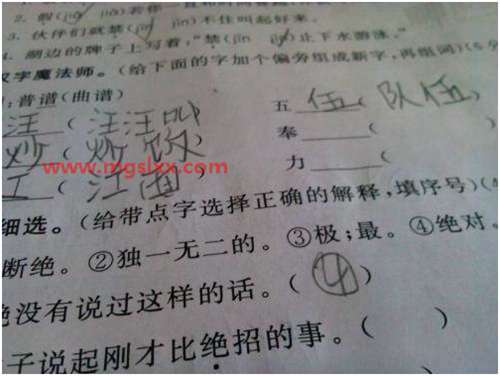 2. 假(jiǎ jià)若你一直和时间赛跑
3. 伙伴们就禁(jīn jìn)不住叫起好来。
4. 湖边的牌子上写着,“禁(jīn jìn)止下水游泳。”
汉字魔法师。(给下面的字加个偏旁组成新字,再组词)(6分
:普谱(曲谱) 五 伍(队伍
汪(汪汪叫 奉 (
炒(炒饭) 力 (
www.mgslxx.com
工(江面)
细选。(给带点字选择正确的解释,填序号)(4
断绝。②独一无二的。③极;最。④绝对。
没有说过这样的话。(④)
子说起刚才比绝招的事。( )